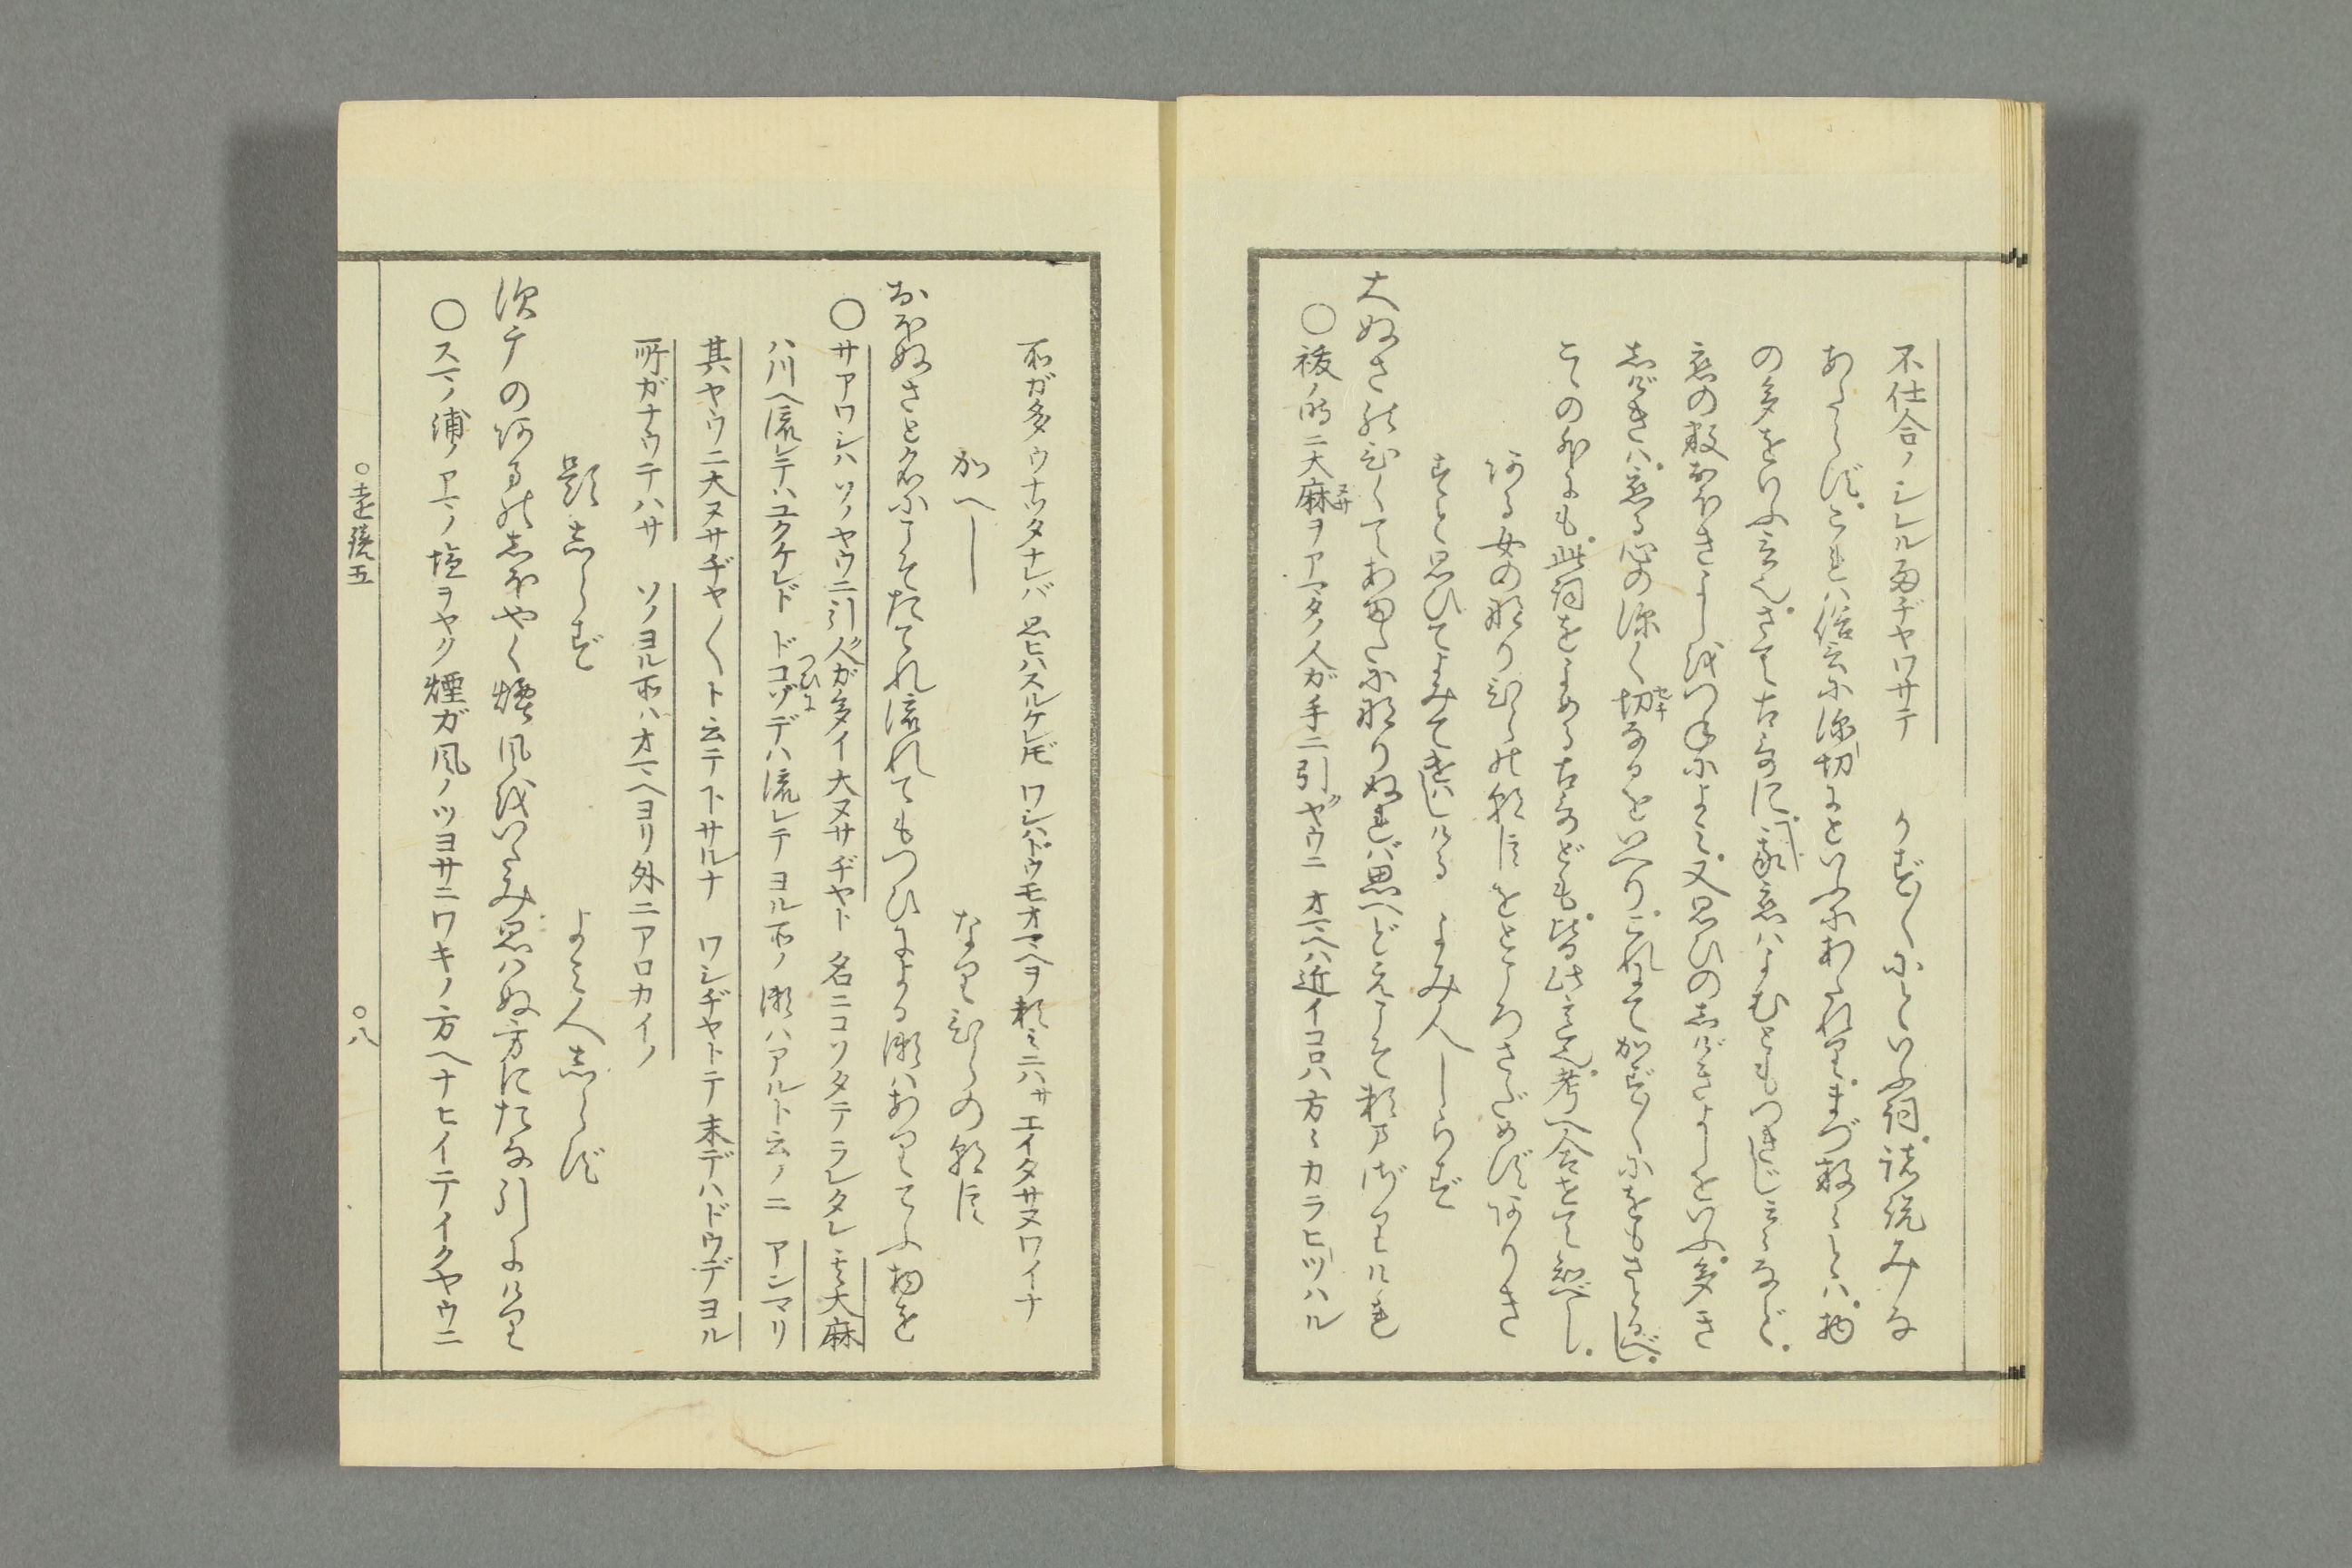 不仕合ノシレル雨ヂヤワサテ　かず〳〵にといふ詞諸説みな
あたらず。これハ俗言に深切にといふにあたれり。まづ数々とハ。物
の多きをいふ言也。さて古哥に。我恋ハよむともつきじ云々など。
恋の数おほきよしをつねによみ。又思ひのしげきよしをいふ。多き
しげきハ。恋る心の深く切なるをいへり。これにて。かず〳〵にをもさとるべし。
その外にも。此詞をよめる古哥ども。皆此意也。考へ合せて知べし。
ある女の朝　をところさだめずありき
すと思ひてよみてつかはしける　よみ人しらず
大ぬさの引くてあまたになりぬれば思へどえこそ頼まざりけれ
○祓ノ時ニ大麻ヲアマタノ人ガ手ニ引ヤウニ　オマヘハ近イコロハ方々カラヒツハル
所ガ多ウナツタナレバ　思ヒハスルケレドモ　ワシハドウモオマヘヲ頼ミニハサ　エイタサヌワイナ
かへし　　なりひらの朝臣
おほぬさと名にこそたてれ流れてもつひによる瀬ハありてふ物を
○サアワシハソノヤウニ引人ガ多イ大ヌサヂヤト　名ニコソタテラレタレ　其大麻
ハ川ヘ流レテハユクケレド　ドコゾデハ流レテヨル所ノ瀬ハアルト云ノニ　アンマリ
其ヤウニ大ヌサヂヤ〳〵ト云テ下サルナ　ワシヂヤトテ末デハドウデヨル
所ガナウテハサ　ソノヨル所ハオマヘヨリ外ニアロカイノ
題しらず　　よみ人しらず
須磨のあまのしほやく煙風をいたみ思ハぬ方にたなびきにけり
○スマノ浦ノアマノ塩ヲヤク煙ガ風ノツヨサニワキノ方ヘナヒイテイクヤウニ
○遠鏡五　　○八